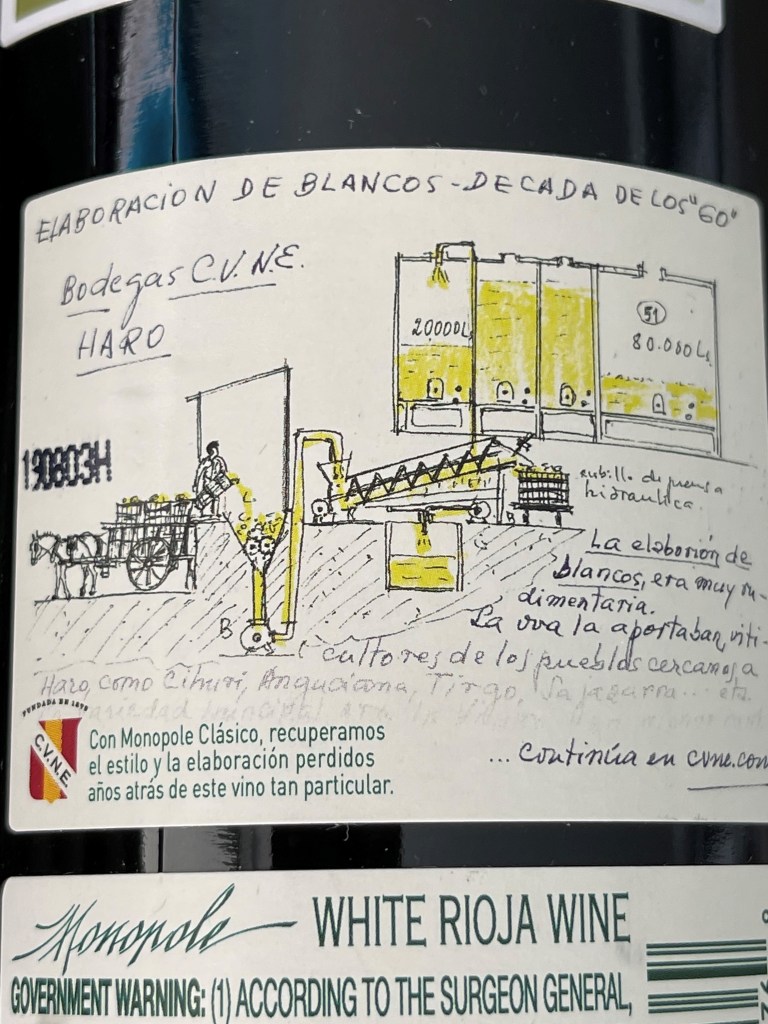 ELABORACION DE BLANCOS - DECADA DE LOS "60"
Bodegas C.V.N.E.
HARO
20000L
51
80.000Ls
190803H
cubillo de prensa
hidraulica
B
B
La elaborión de
blancos, era muy ru-
dimentaria.
La uva la aportaban, viti-
cultores de los pueblos cercanos a
Haro, como Cihuri, Anguciana, Tirgo, Sajazarra... etc.
FUNDADA EN 1879
C.V.N.E.
Con Monopole Clásico, recuperamos
el estilo y la elaboración perdidos
años atrás de este vino tan particular.
... continúa en cvne.com
Monopole WHITE RIOJA WINE
GOVERNMENT WARNING: (1) ACCORDING TO THE SURGEON GENERAL,